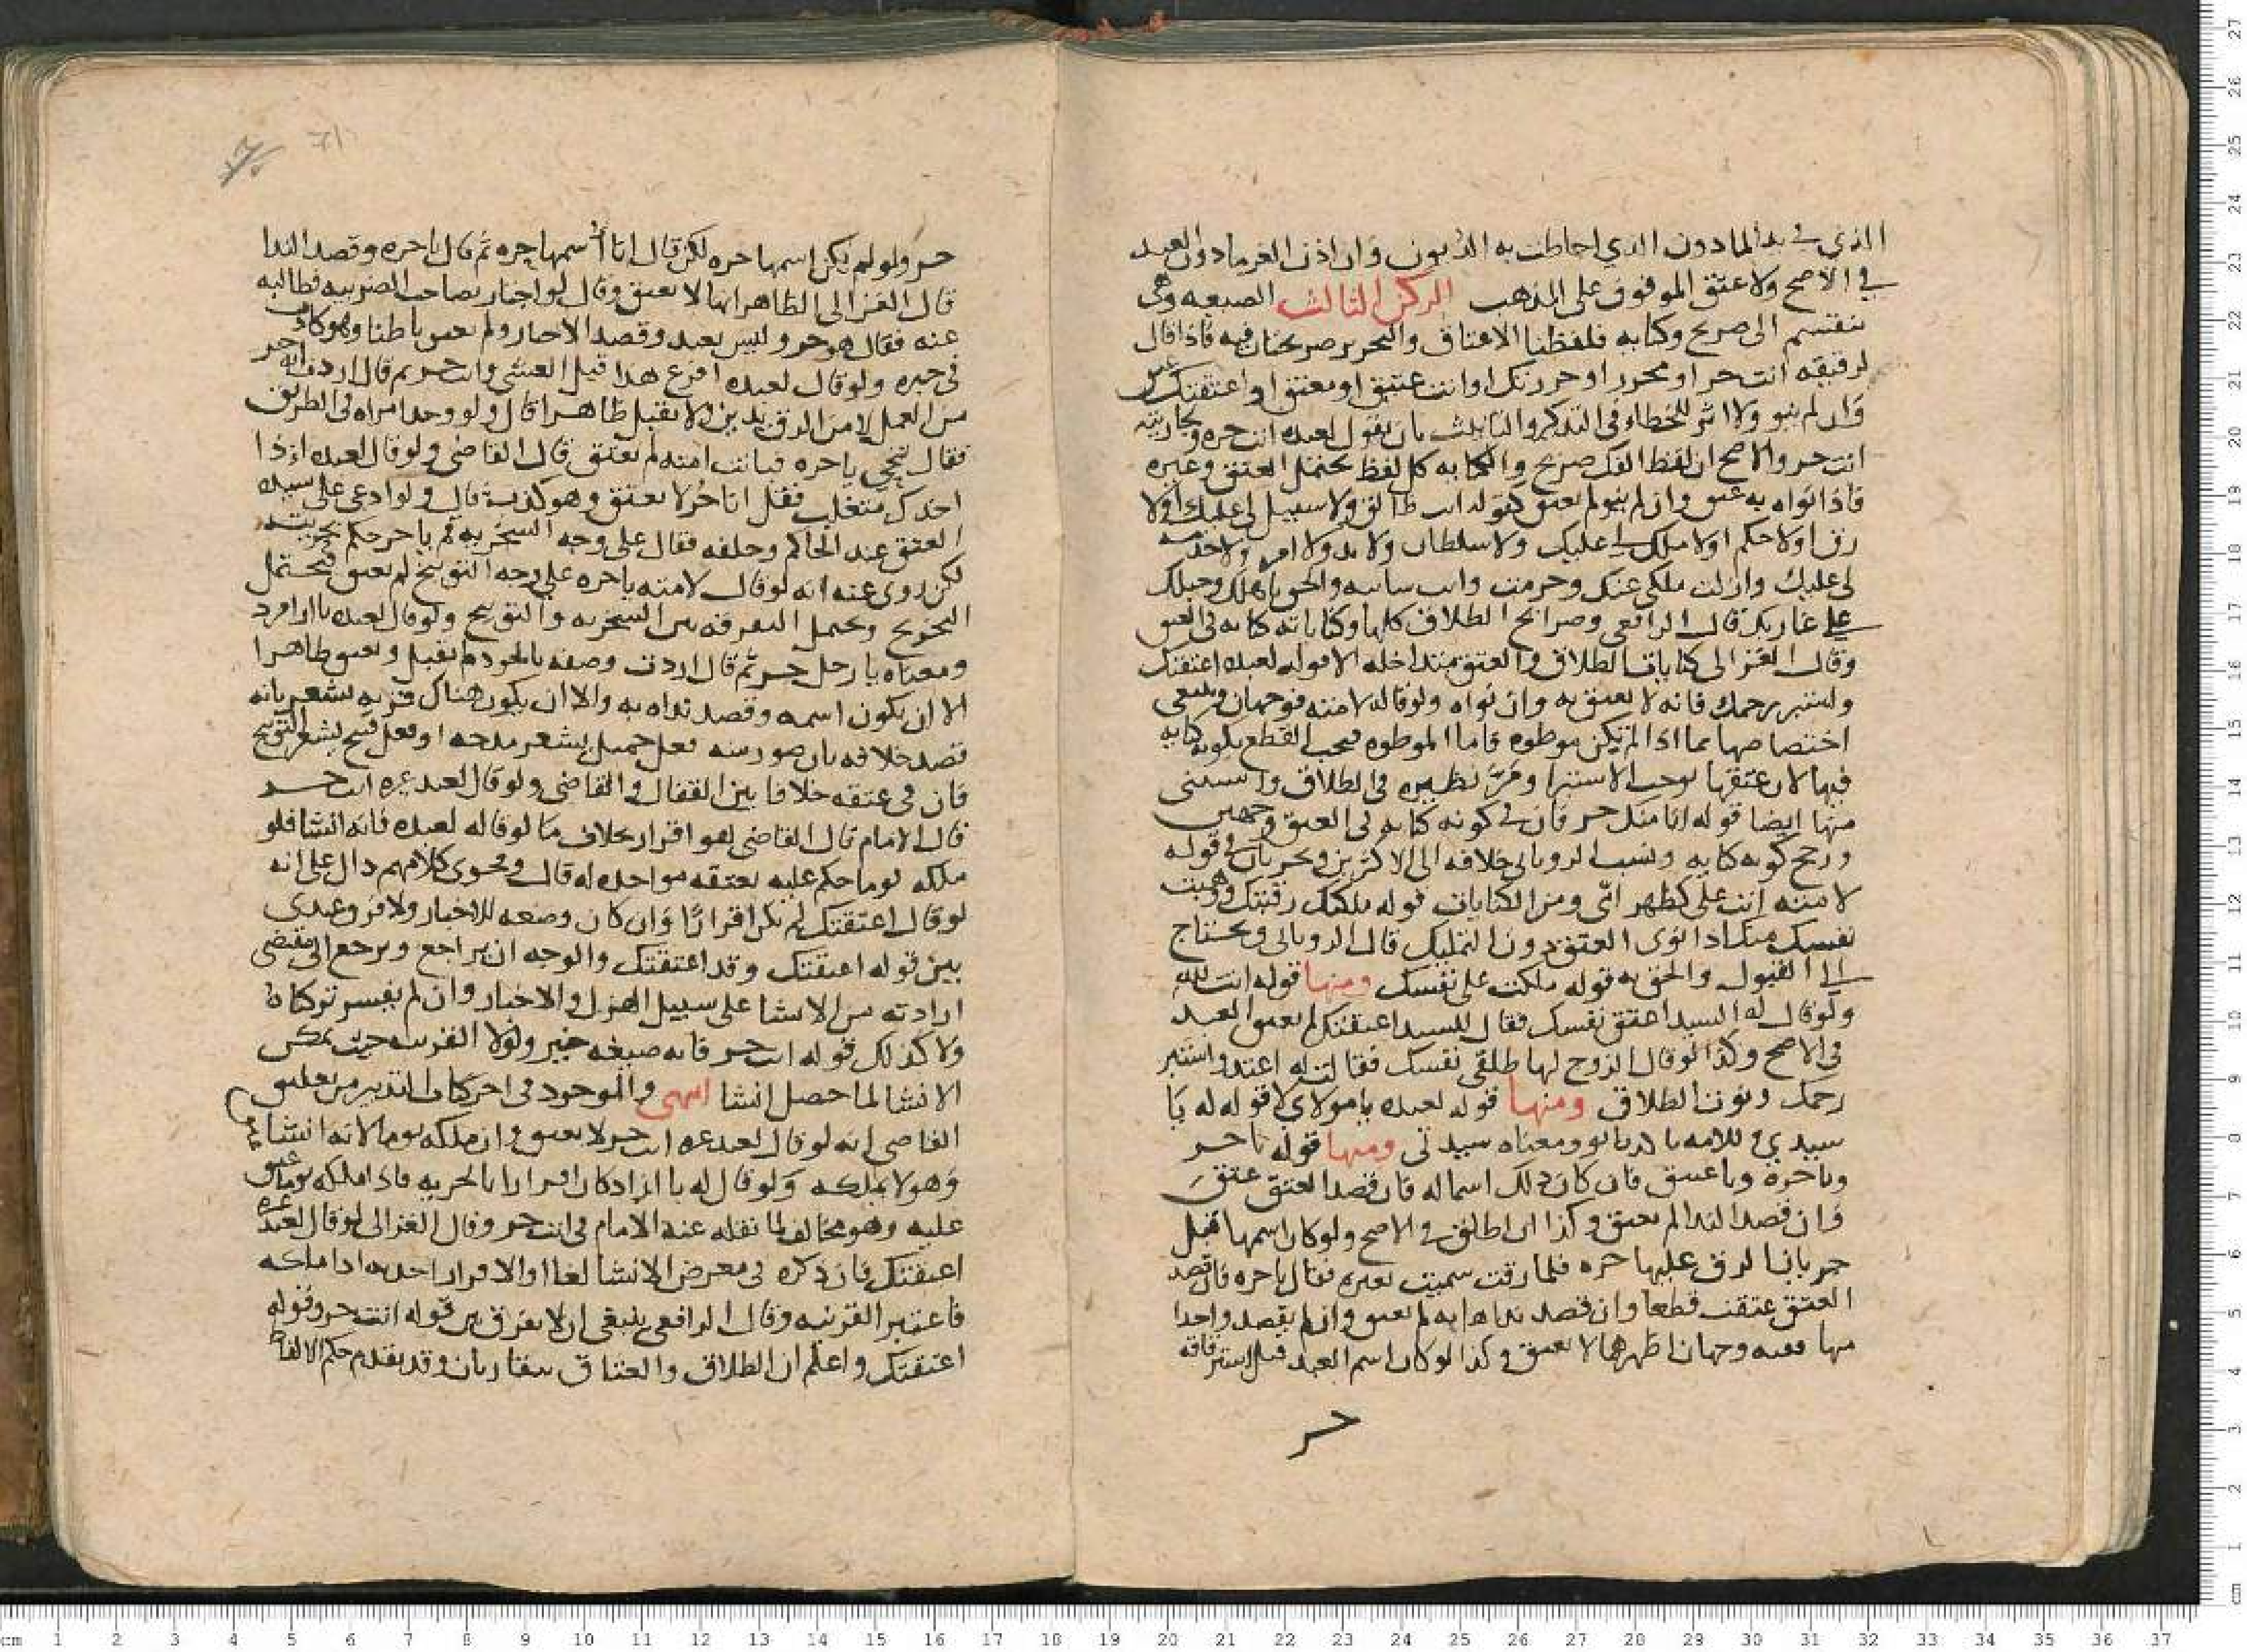 الذي في يد المادون الذي احاطت به الديون وان اذن الغرما دون العبد
في الاصح ولا عتق الموقوف على المذهب الركن الثالث الصيغه وهي
تنقسم الى صريح وكنايه فلفظتا الاعتاق والتحرير صريحتان فيه فاذا قال
لرقيقه انت حر او محرر او حررتك او انت عتيق او معتق او اعتقتك عتق
وان لم ينو ولا اثر للخطاء في التذكير والتانيث بان يقول لعبده انت حره ولجاريته
انت حر والاصح ان لفظ الفك صريح والكنايه كل لفظ يحتمل العتق وغيره
فاذا نواه به عتق وان لم ينو لم يعتق كقوله انت طالق ولا سبيل لي عليك او لا
رق او لا حكم او لا ملك لي عليك ولا سلطان ولا يد ولا امر ولا خدمه
لي عليك وازلت ملكي عنك وحرمت وانت سائبه والحق باهلك وحبلك
على غاربك قال الرافعي وصرائح الطلاق كلها وكناياته كنايه في العتق
وقال الغزالي كنايات الطلاق والعتق متداخله الا قوله لعبده اعتقتك
واستبر رحمك فانه لا يعتق به وان نواه ولو قاله لامته فوجهان وينبغي
اختصاصها بما اذا لم تكن موطوه فاما الموطوه فيجب القطع بكونه كنايه
فيها لان عتقها يوجب الاستبرا ومر نظيره في الطلاق واستثنى
منها ايضا قوله انا منك حر فان في كونه كنايه في العتق وجهين
ورجح كونه كنايه ونسب الروياني خلافه الى الاكثرين ويجريان في قوله
لامته انت علي كظهر امي ومن الكنايات قوله ملكتك رقبتك ووهبت
نفسك منك اذا نوى العتق دون التمليك قال الروياني ويحتاج
الى القبول والحق به قوله ملكت على نفسك ومنها قوله انت لله
ولو قال له السيد اعتق نفسك فقال للسيد اعتقتك لم يعتق العبد
في الاصح وكذا لو قال الزوج لها طلقي نفسك فقالت له اعتد واستبر
رحمك ونوت الطلاق ومنها قوله لعبده يا مولاي لا قوله له يا
سيدي وللامه يا كدبانو ومعناه سيدتي ومنها قوله يا حر
ويا حره ويا عتيق فان كان ذلك اسما له فان قصد العتق عتق
وان قصد الندا لم يعتق وكذا ان اطلق في الاصح ولو كان اسمها قبل
جريان الرق عليها حره فلما رقت سميت بغيره فقال يا حره فان قصد
العتق عتقت قطعا وان قصد نداها به لم تعتق وان لم يقصد واحدا
منها ففيه وجهان اظهرهما لا تعتق وكذا لو كان اسم العبد قبل استرقاقه
حر
حر ولو لم يكن اسمها حره لكن قال انا اسمها حره ثم قال يا حره وقصد الندا
قال الغزالي الظاهر انها لا تعتق وقال لو اجتاز بصاحب الضريبه فطالبه
عنه فقال هو حر وليس بعبد وقصد الاخبار ولم يعتق باطنا وهو كاذب
في خبره ولو قال لعبده افرغ هذا قبل العشي وانت حر ثم قال اردت انه حر
من العمل لا من الرق يدين ولا يقبل ظاهرا قال ولو وجد امراه في الطريق
فقال تنحي يا حره فبانت امته لم تعتق قال القاضي ولو قال لعبده اذا
اخذك متغلب فقل انا حر لا يعتق وهو كذب قال ولو ادعى على سيده
العتق عند الحاكم وحلفه فقال على وجه السخريه قم يا حر حكم بحريته
لكن روى عنه انه لو قال لامته يا حره على وجه التوبيخ لم تعتق فيحتمل
التخريج ويحتمل التفرقه بين السخريه والتوبيخ ولو قال لعبده يا ازاد مرد
ومعناه يا رجل حر ثم قال اردت وصفه بالجود لم يقبل ويعتق ظاهرا
الا ان يكون اسمه وقصد نداه به والا ان يكون هناك قرينه تشعر بانه
قصد خلافه بان صدر منه فعل جميل يشعر بمدحه او فعل قبيح يشعر بالتوبيخ
فان في عتقه خلافا بين القفال والقاضي ولو قال لعبد غيره انت حر
قال الامام قال القاضي هو اقرار بخلاف ما لو قاله لعبده فانه انشا فلو
ملكه يوما حكم عليه بعتقه مواخذه له قال وفحوى كلامهم دال على انه
لو قال اعتقتك لم يكن اقرارا وان كان وضعه للاخبار ولا فرق عندي
بين قوله اعتقتك وقد اعتقتك والوجه ان يراجع ويرجع الى مقتضى
ارادته من الانشا على سبيل الهزل والاخبار وان لم يفسر تركناه
ولا كذلك قوله انت حر فانه صيغه خبر ولولا القرينه حيث تمكن
الانشا لما حصل انشا انتهى والموجود في اخر كتاب التدبير من تعليق
القاضي انه لو قال لعبد غيره انت حر لا يعتق وان ملكه يوما لانه انشا
وهو لا يملكه ولو قال له يا ازاد كان اقرارا بالحريه فاذا ملكه يوما عتق
عليه وهو مخالف لما نقله عنه الامام في انت حر وقال الغزالي لو قال لعبد غيره
اعتقتك فان ذكره في معرض الانشا لغا او الاقرار اخذ به اذا ملكه
فاعتبر القرينه وقال الرافعي ينبغي ان لا يفرق بين قوله انت حر وقوله
اعتقتك واعلم ان الطلاق والعتاق يتقاربان وقد يقدم حكم الالفاظ